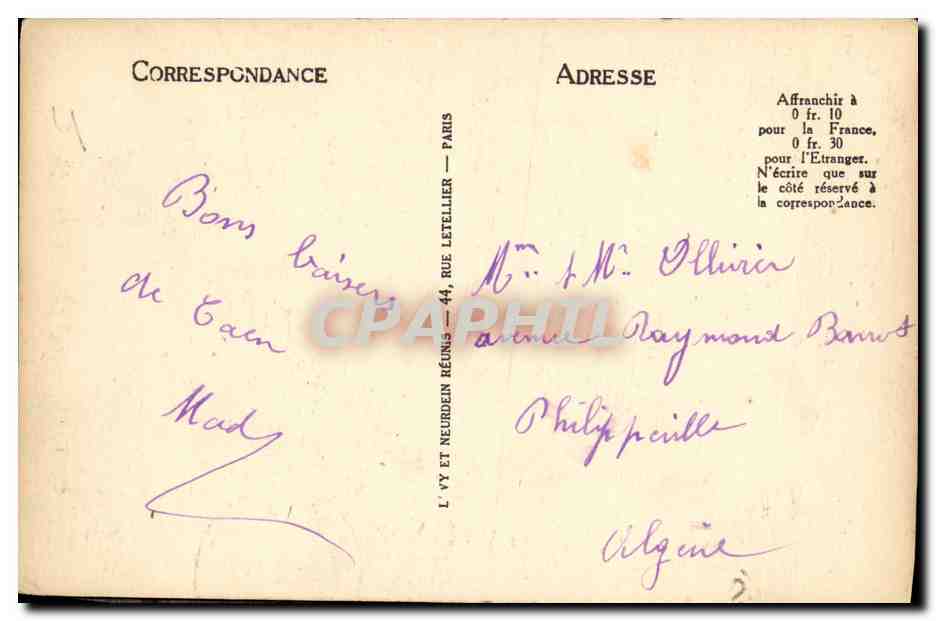 CORRESPONDANCE
Bons baisers
de Caen
Mad
L'VY ET NEURDEIN RÉUNIS — 44, RUE LETELLIER — PARIS
ADRESSE
Affranchir à
0 fr. 10
pour la France,
0 fr. 30
pour l'Etranger.
N'écrire que sur
le côté réservé à
la correspondance.
Mme & Mr Ollivier
avenue Raymond Barrot
Philippeville
Algérie
CPAPHIL